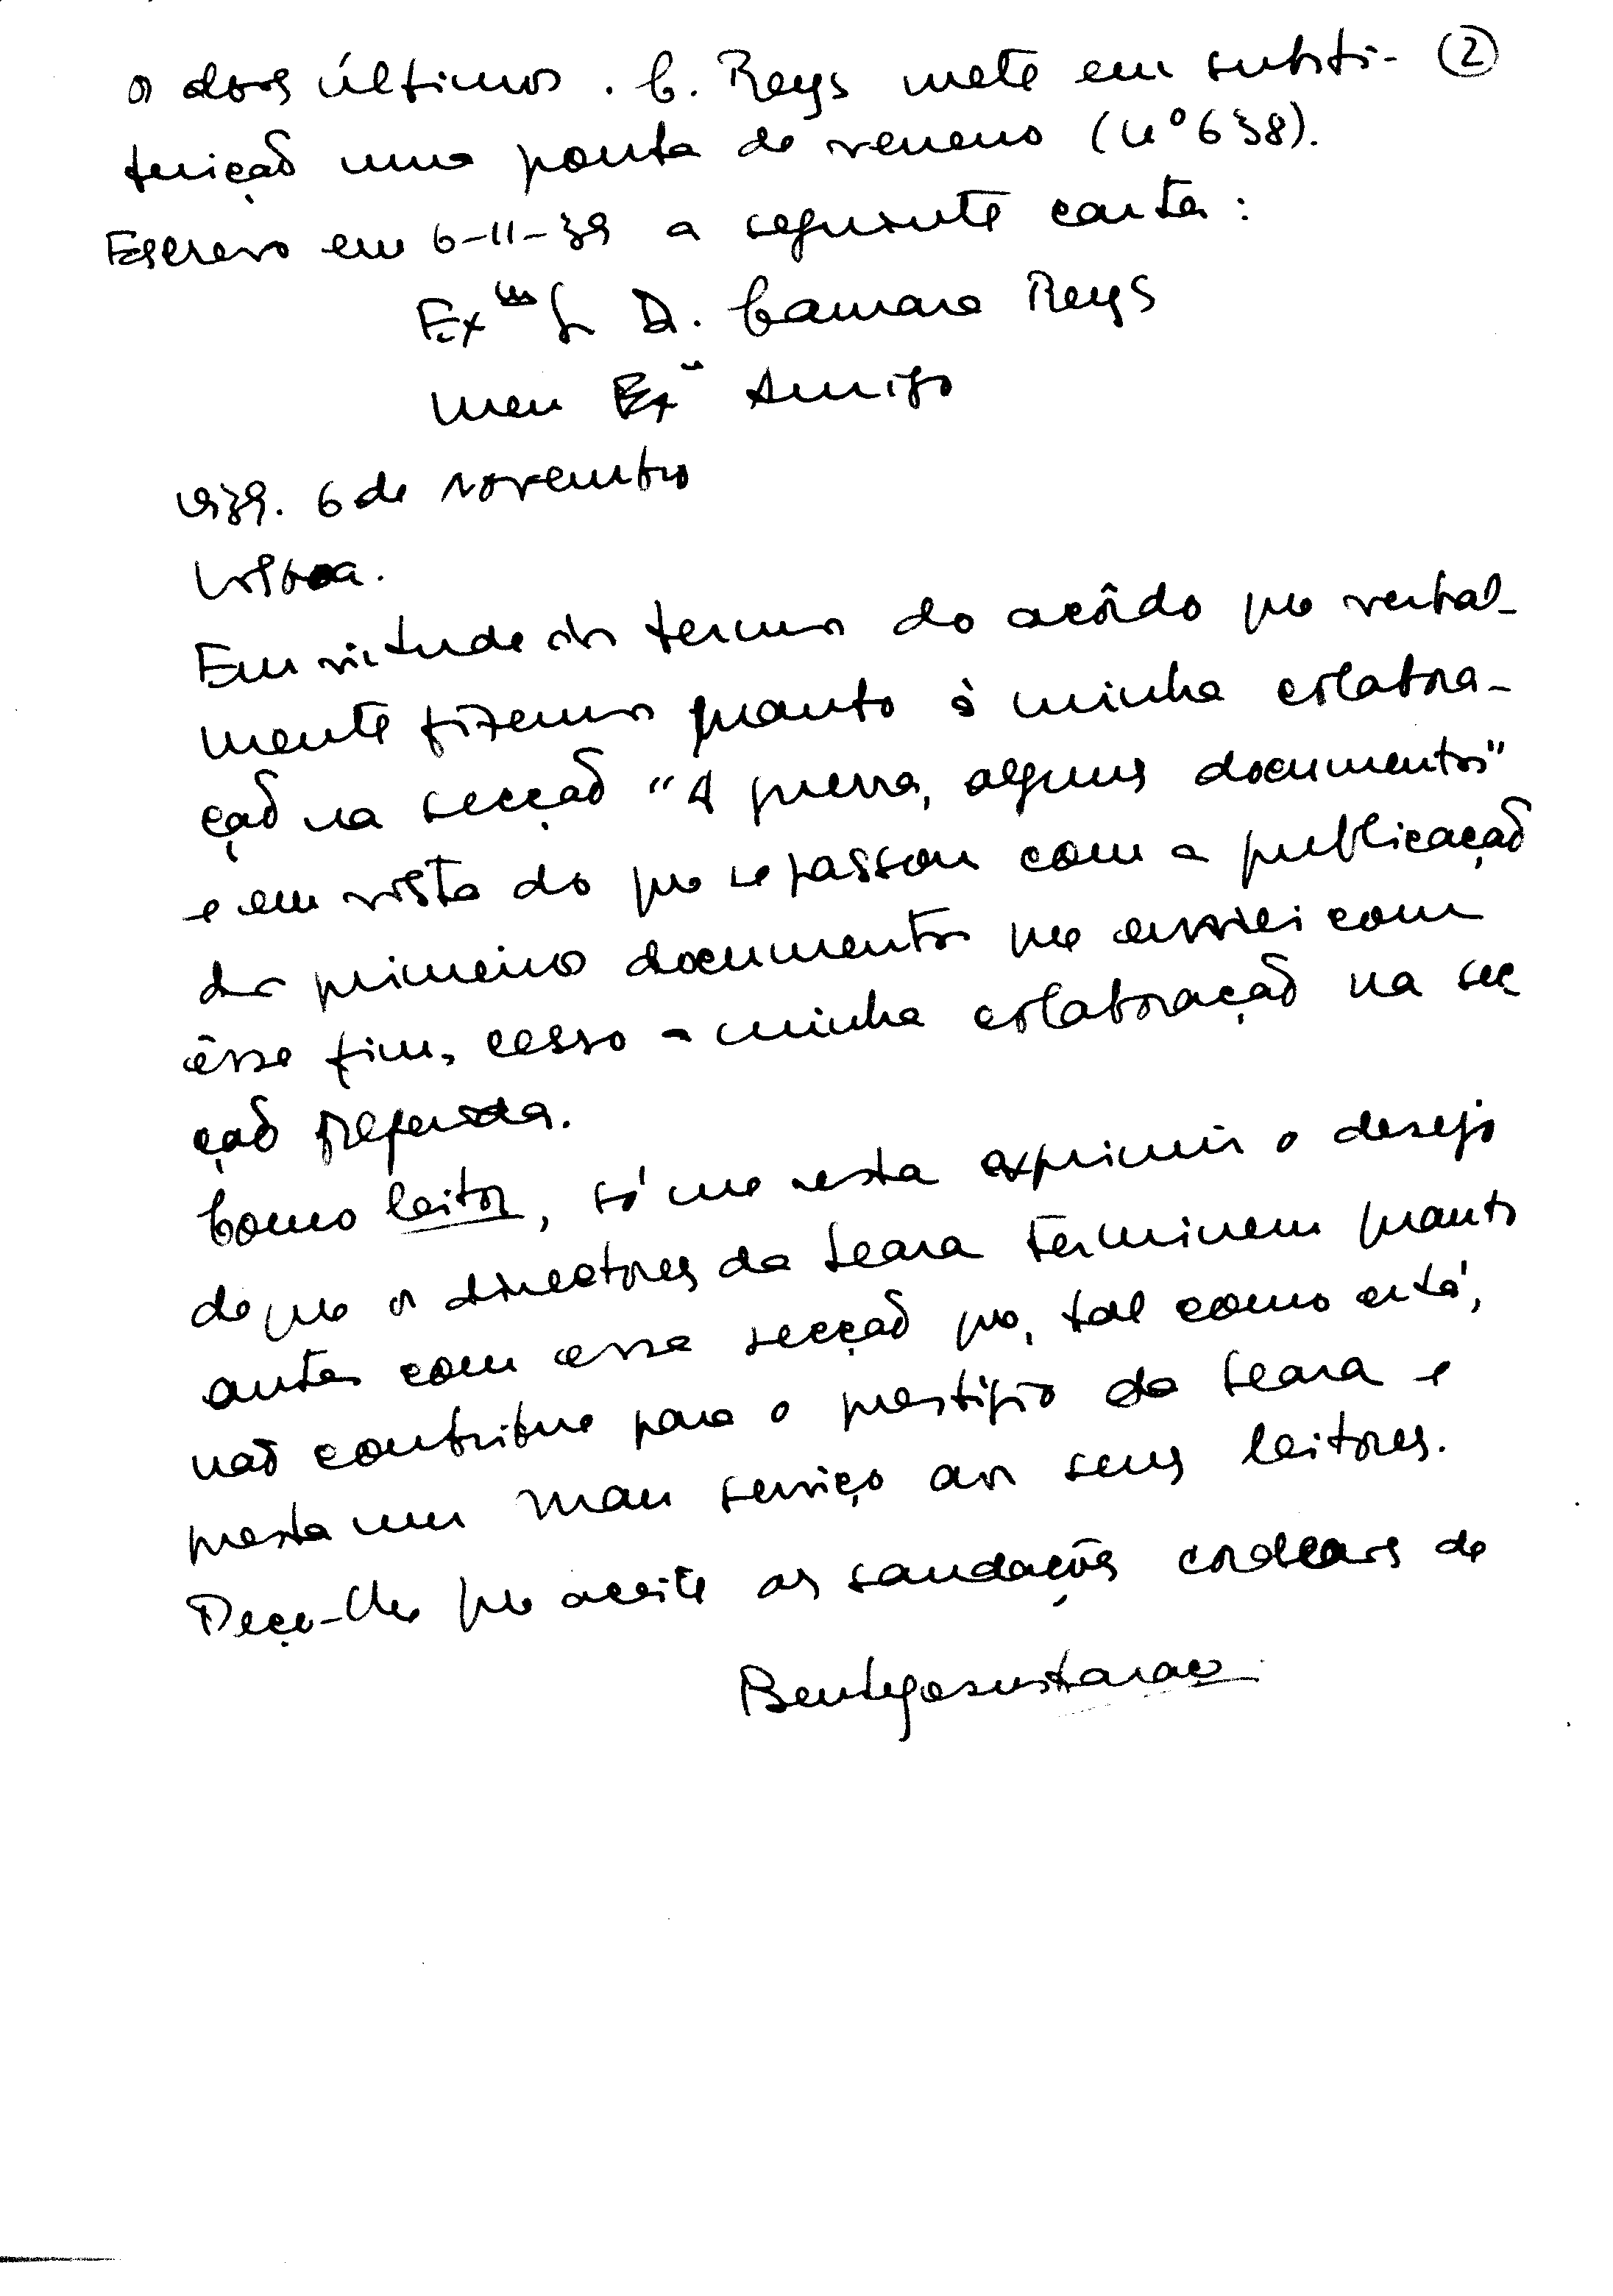 os dois últimos. C. Reys mete em substi- ②
tuição uma ponta de veneno (nº 638).
Escrevo em 6-11-39 a seguinte carta:
Exmo Sr Dr. Camara Reys
Meu Exmo Amigo
1939. 6 de novembro
Lisboa.
Em virtude dos termos do acôrdo que verbal-
mente fizemos quanto à minha colabora-
ção na secção "A guerra, alguns documentos"
e em vista do que se passou com a publicação
dos primeiros documentos que enviei com
êsse fim, cesso a minha colaboração na sec
ção referida.
Como leitor, só me resta exprimir o desejo
de que os directores da Seara terminem quanto
antes com essa secção que, tal como está,
não contribue para o prestígio da Seara e
presta um mau serviço aos seus leitores.
Peço-lhe que aceite as saudações cordeais de
Bento de Jesus Caraça